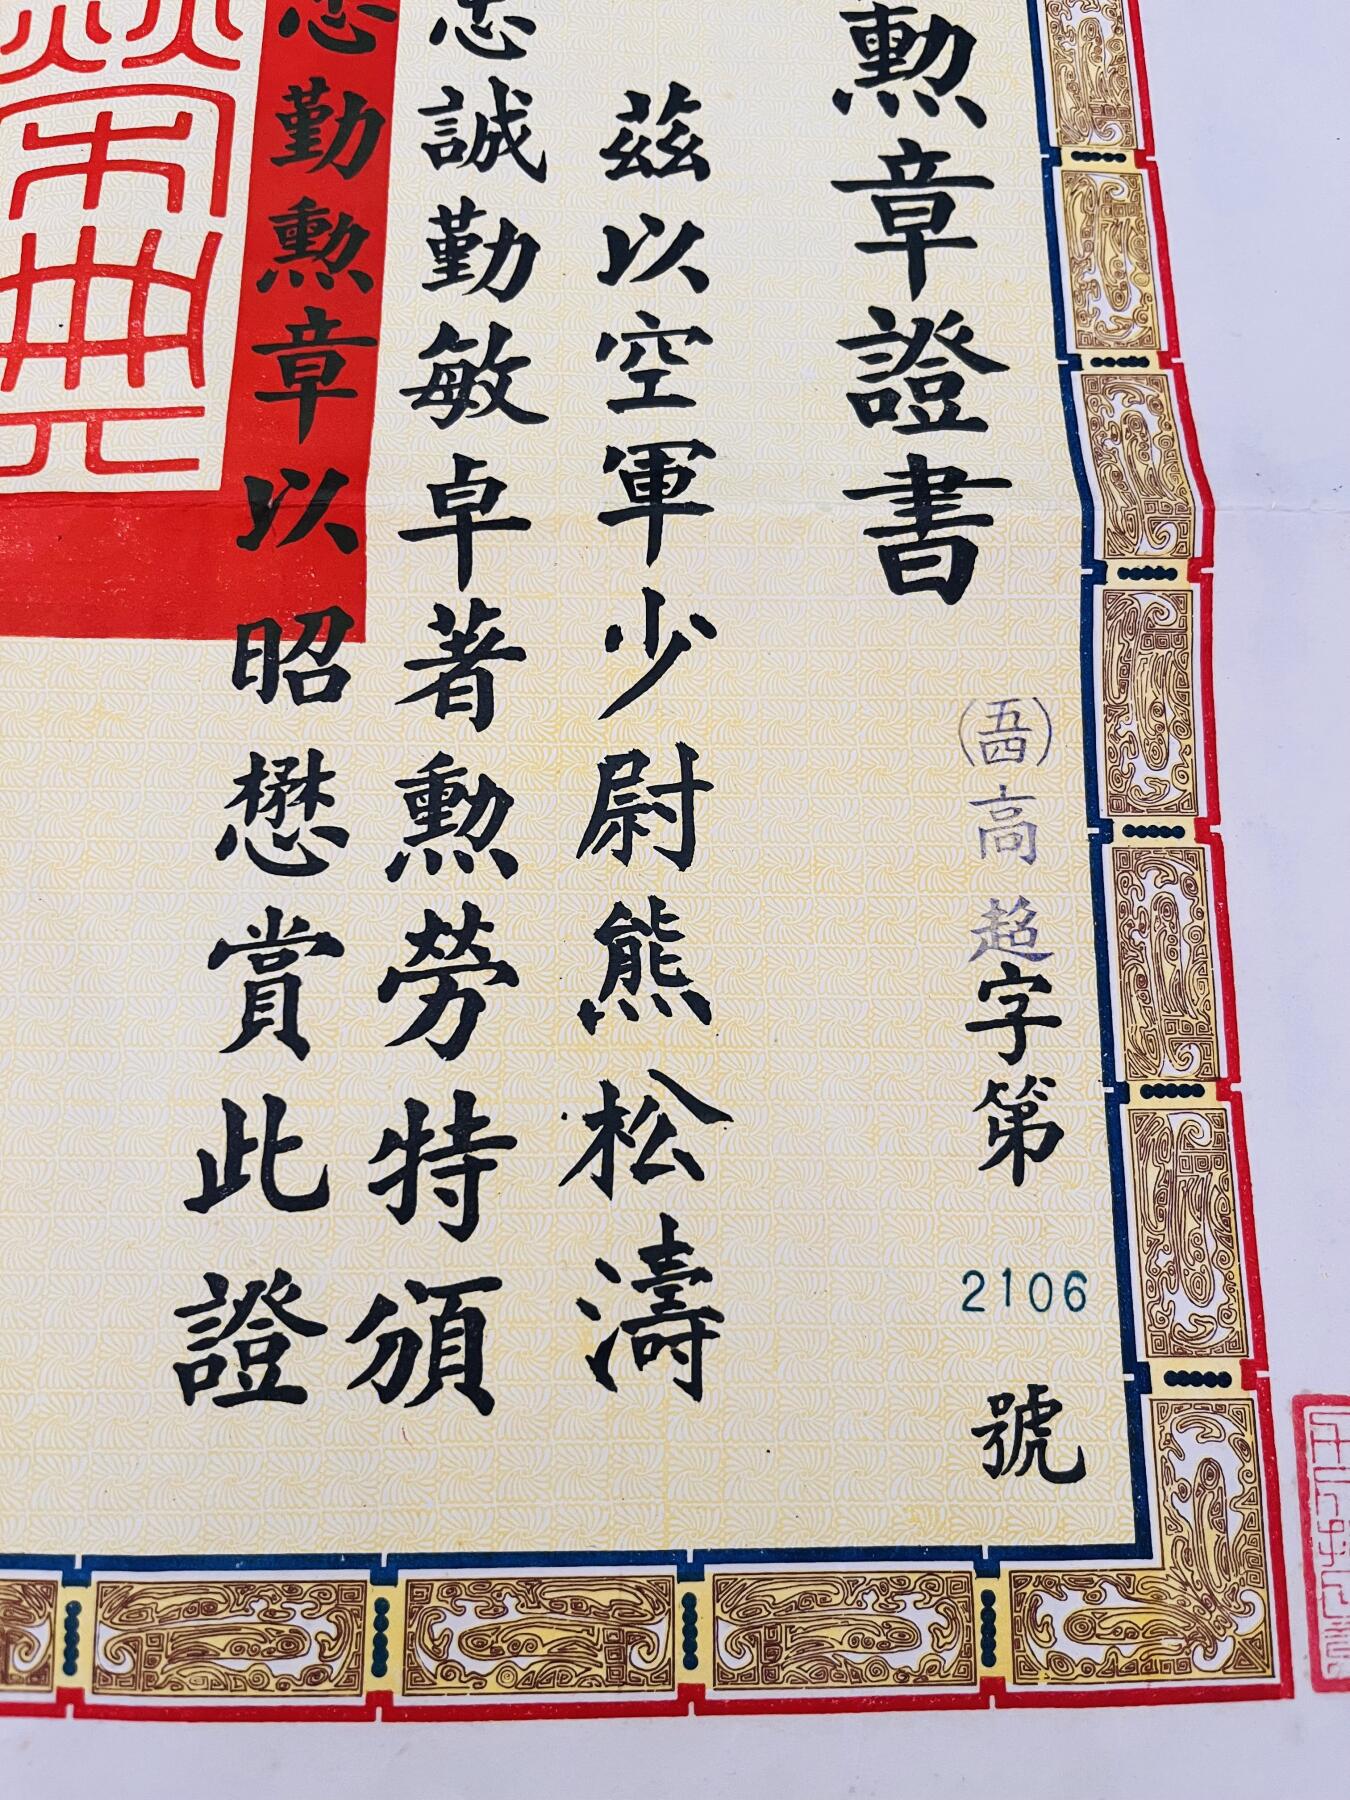 勳章證書
㊄高超字第2106號
茲以空軍少尉熊松濤
忠誠勤敏卓著勳勞特頒
忠勤勳章以昭懋賞此證
榮典